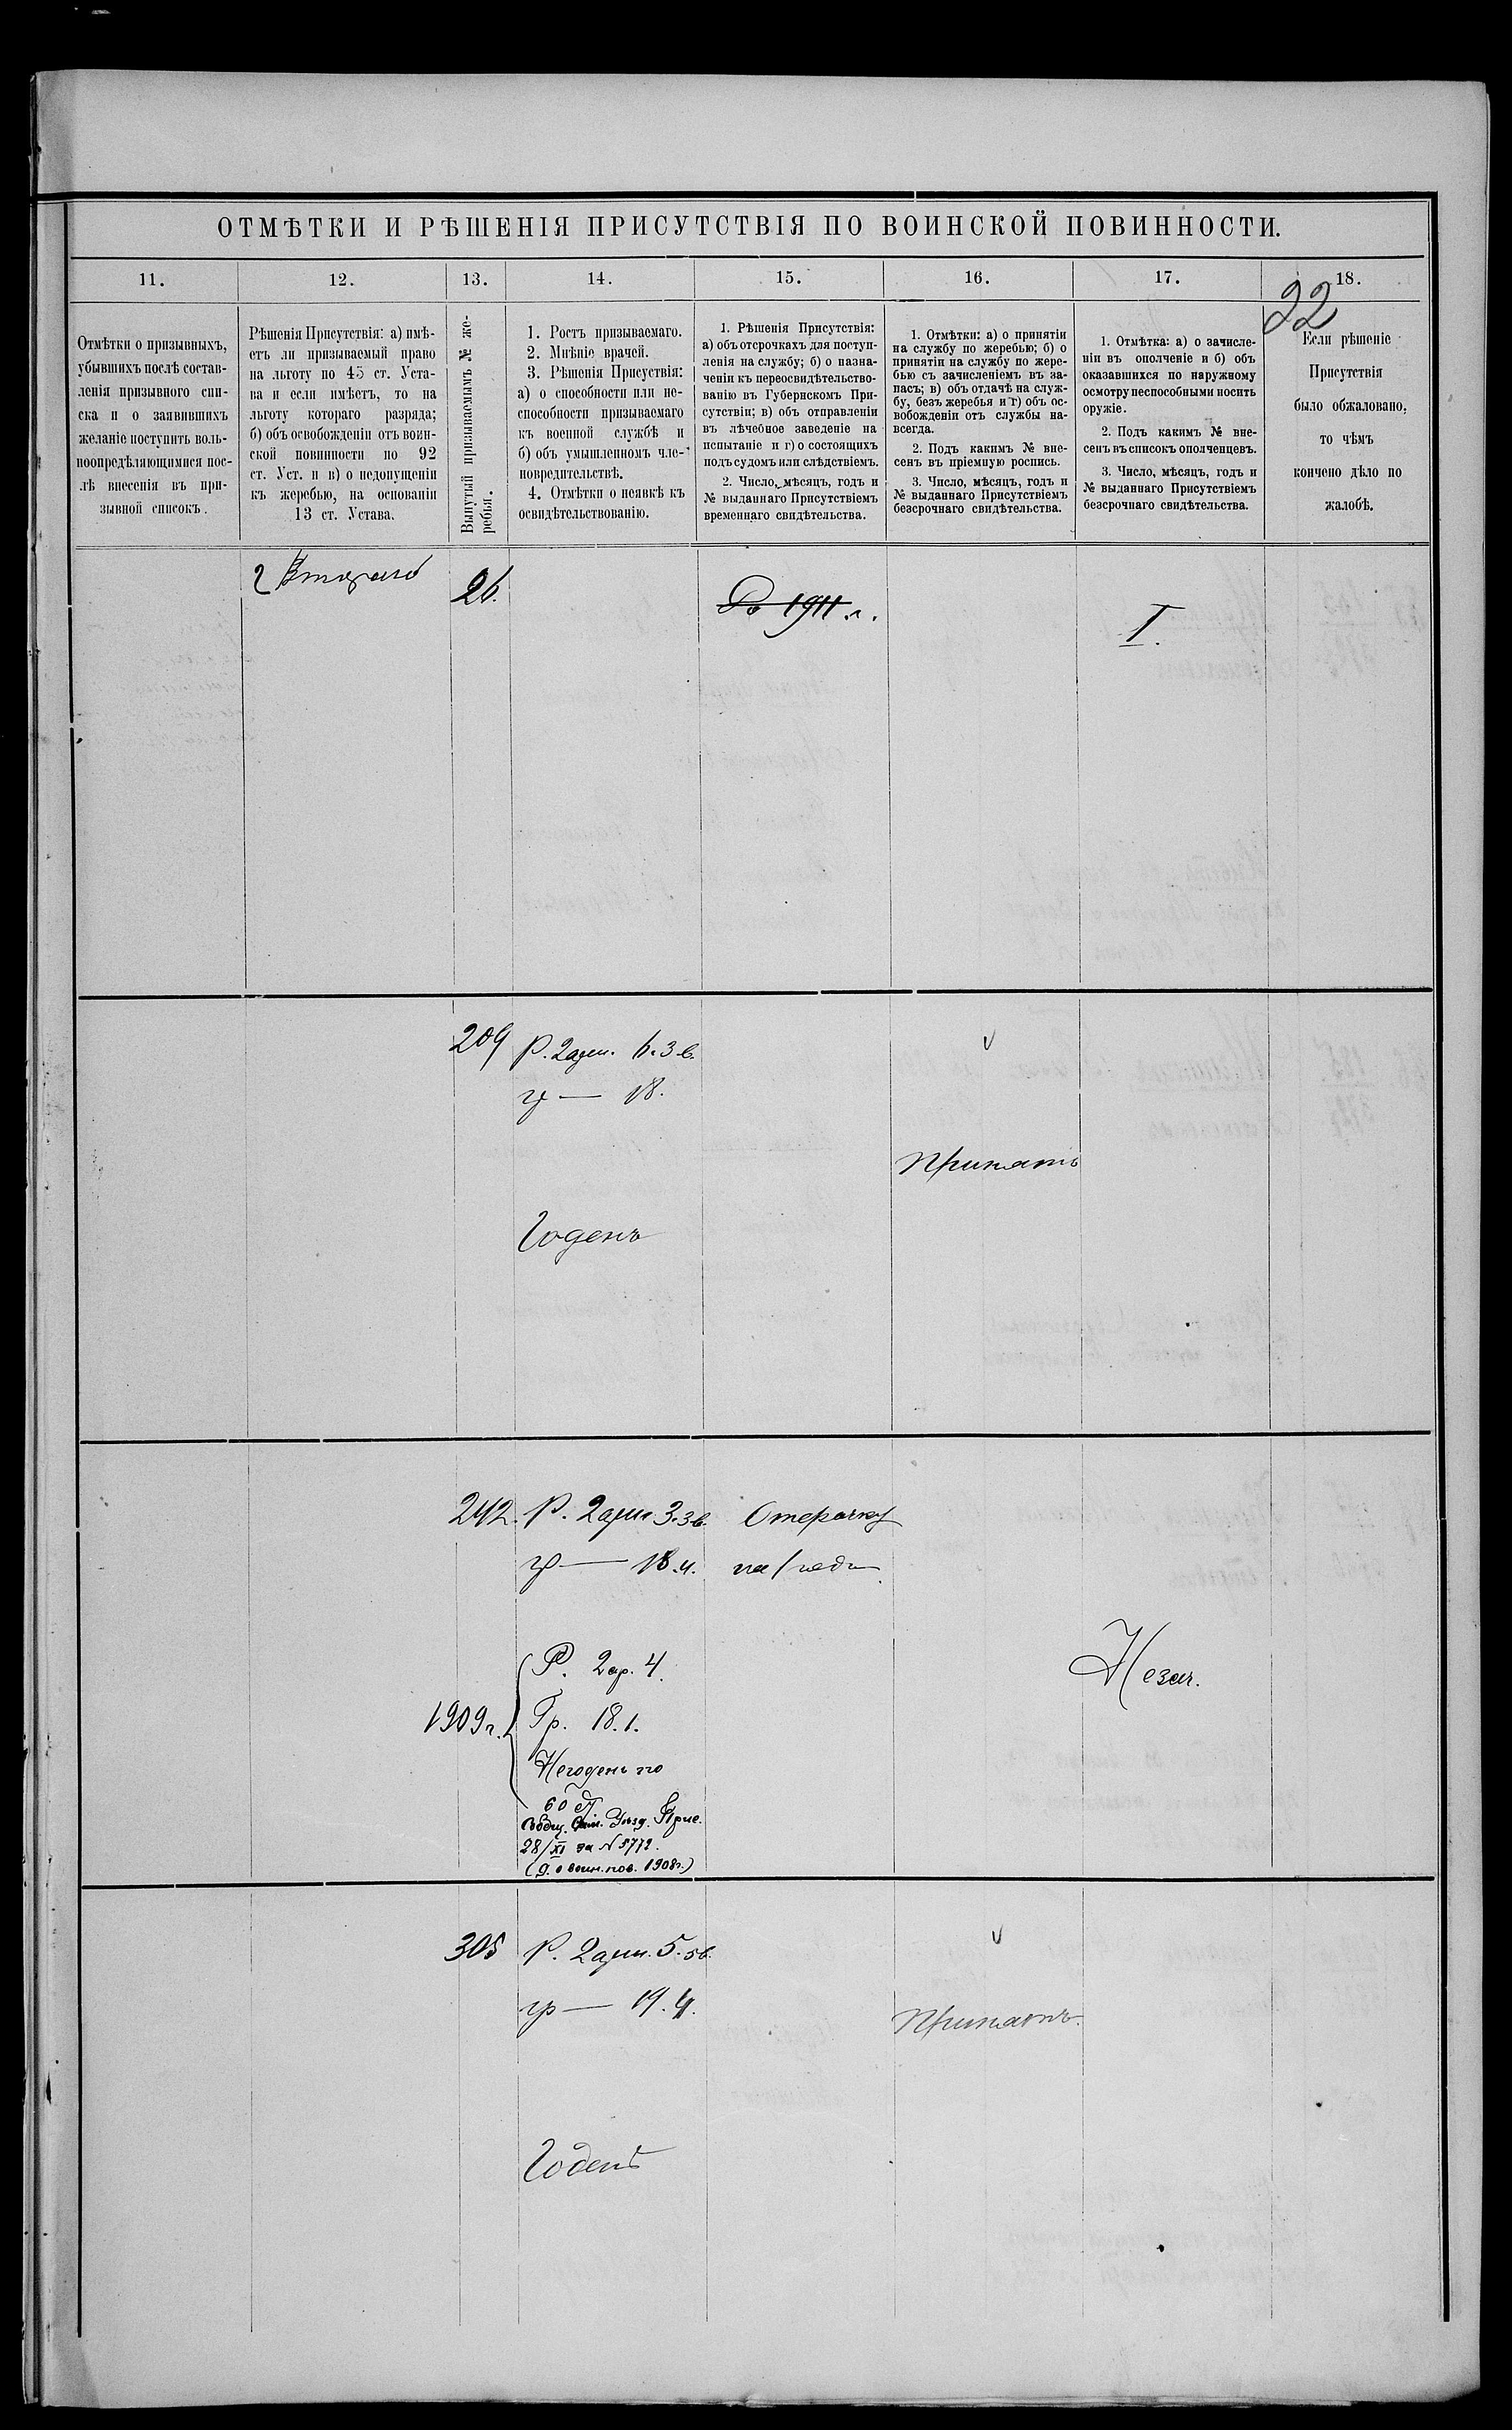 ОТМѢТКИ И РѢШЕНІЯ ПРИСУТСТВІЯ ПО ВОИНСКОЙ ПОВИННОСТИ.
11.
12.
13.
14.
15.
16.
17.
18.
22
Отмѣтки о призывныхъ,
убывшихъ послѣ состав-
ленія призывного спи-
ска и о заявившихъ
желаніе поступить воль-
ноопредѣляющимися пос-
лѣ внесенія въ при-
зывной списокъ.
Рѣшенія Присутствія: а) имѣ-
етъ ли призываемый право
на льготу по 45 ст. Уста-
ва и если имѣетъ, то на
льготу котораго разряда;
б) объ освобожденіи отъ воин-
ской повинности по 92
ст. Уст. и в) о недопущеніи
къ жеребью, на основаніи
13 ст. Устава.
Вынутый призываемымъ № же-
ребья.
1. Ростъ призываемаго.
2. Мнѣніе врачей.
3. Рѣшенія Присуствія:
а) о способности или не-
способности призываемаго
къ военной службѣ и
б) объ умышленномъ чле-
новредительствѣ.
4. Отмѣтки о неявкѣ къ
освидѣтельствованію.
1. Рѣшенія Присутствія:
а) объ отсрочкахъ для поступ-
ленія на службу; б) о назна-
ченіи къ переосвидѣтельство-
ванію въ Губернскомъ При-
сутствіи; в) объ отправленіи
въ лѣчебное заведеніе на
испытаніе и г) о состоящихъ
подъ судомъ или слѣдствіемъ.
2. Число, мѣсяцъ, годъ и
№ выданнаго Присутствіемъ
временнаго свидѣтельства.
1. Отмѣтки: а) о принятіи
на службу по жеребью; б) о
принятіи на службу по жере-
бью съ зачисленіемъ въ за-
пасъ; в) объ отдачѣ на служ-
бу, безъ жеребья и г) объ ос-
вобожденіи отъ службы на-
всегда.
2. Подъ какимъ № вне-
сенъ въ пріемную роспись.
3. Число, мѣсяцъ, годъ и
№ выданнаго Присутствіемъ
безсрочнаго свидѣтельства.
1. Отмѣтка: а) о зачисле-
ніи въ ополченіе и б) объ
оказавшихся по наружному
осмотру неспособными носить
оружіе.
2. Подъ какимъ № вне-
сенъ въ списокъ ополченцевъ.
3. Число, мѣсяцъ, годъ и
№ выданнаго Присутствіемъ
безсрочнаго свидѣтельства.
Если рѣшеніе
Присутствія
было обжаловано,
то чѣмъ
кончено дѣло по
жалобѣ.
2 Втораго
26.
До 1911 г.
I.
209
Р. 2 арш. 6.3 в.
гр — 18.
Принятъ
Годенъ
242.
Р. 2 арш. 3.3 в.
Отсрочку
гр — 18.4.
на 1 годъ
Р. 2 ар. 4.
Незач.
1909 г.
Гр. 18.1.
Негоденъ по
60
Уѣзд. Прис.
28/XI за № 5772.
(д. о воин. пов. 1908 г.)
305
Р. 2 арш. 5.5 в.
гр — 19.4.
Принятъ.
Годенъ